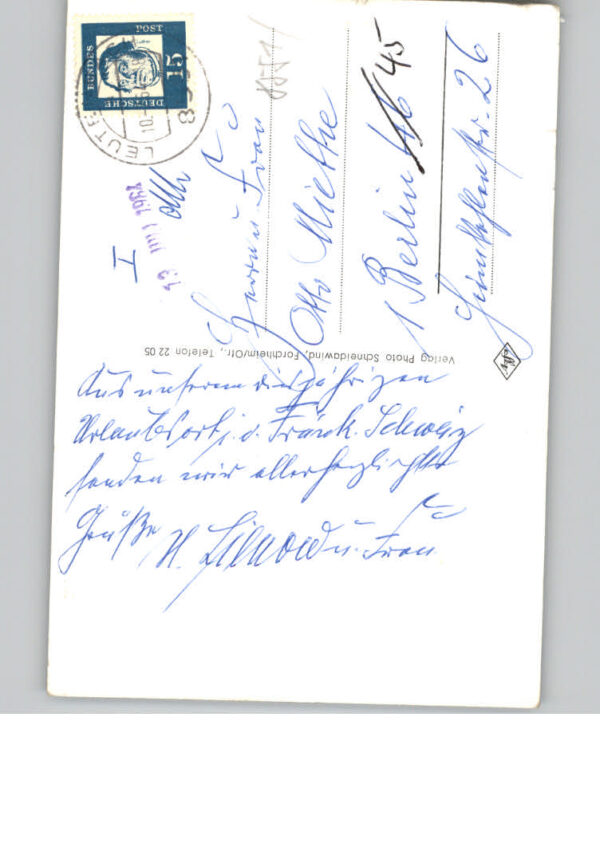 DEUTSCHE
BUNDES
POST
15
LEUTE
10.
855
8551
13 JUNI 1962
I
Herrn u. Frau
Otto Miethe
1 Berlin 46 45
26
Verlag Photo Schneidawind, Forchheim/Ofr., Telefon 22 05
Agfa
Aus unserem diesjährigen
Urlaubsort i. d. Fränk. Schweiz
senden wir allerherzlichste
Grüße H. u. Frau